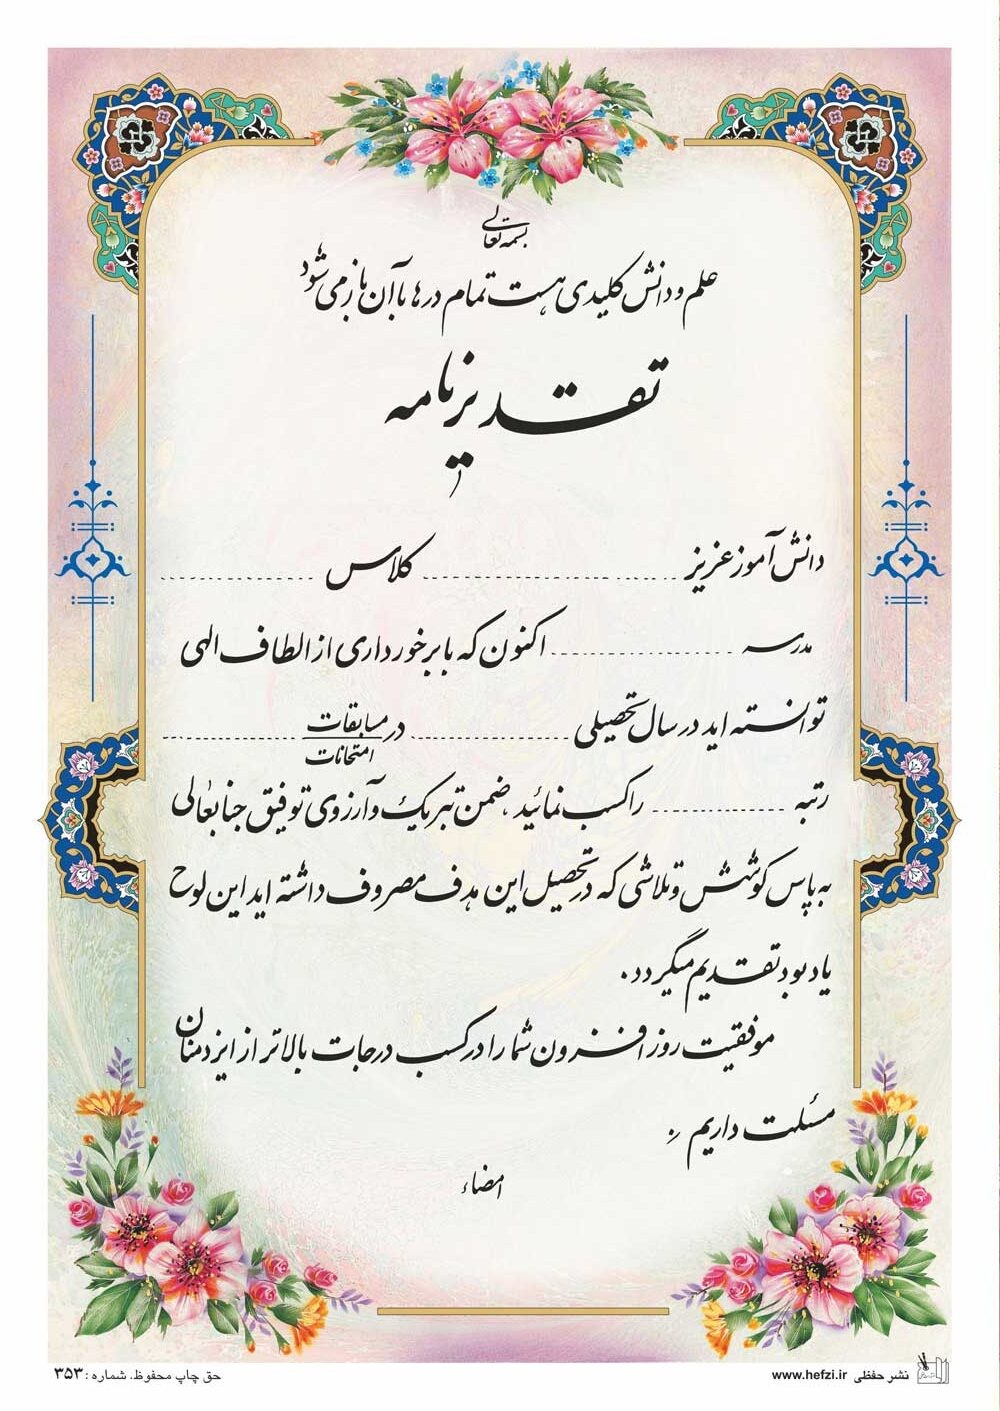 بسمه تعالی
علم و دانش کلیدی هست تمام درها با آن باز می شود
تقدیرنامه
دانش آموز عزیز ........................ کلاس ................
مدرسه ................... اکنون که با برخورداری از الطاف الهی
توانسته اید در سال تحصیلی ................ در مسابقات ................
امتحانات
رتبه .............. را کسب نمائید، ضمن تبریک و آرزوی توفیق جنابعالی
به پاس کوشش و تلاشی که در تحصیل این هدف مصروف داشته اید این لوح
یادبود تقدیم میگردد.
موفقیت روز افزون شما را در کسب درجات بالاتر از ایزد منان
مسئلت داریم.
امضاء
نشر حفظی www.hefzi.ir
حق چاپ محفوظ. شماره: ۳۵۳